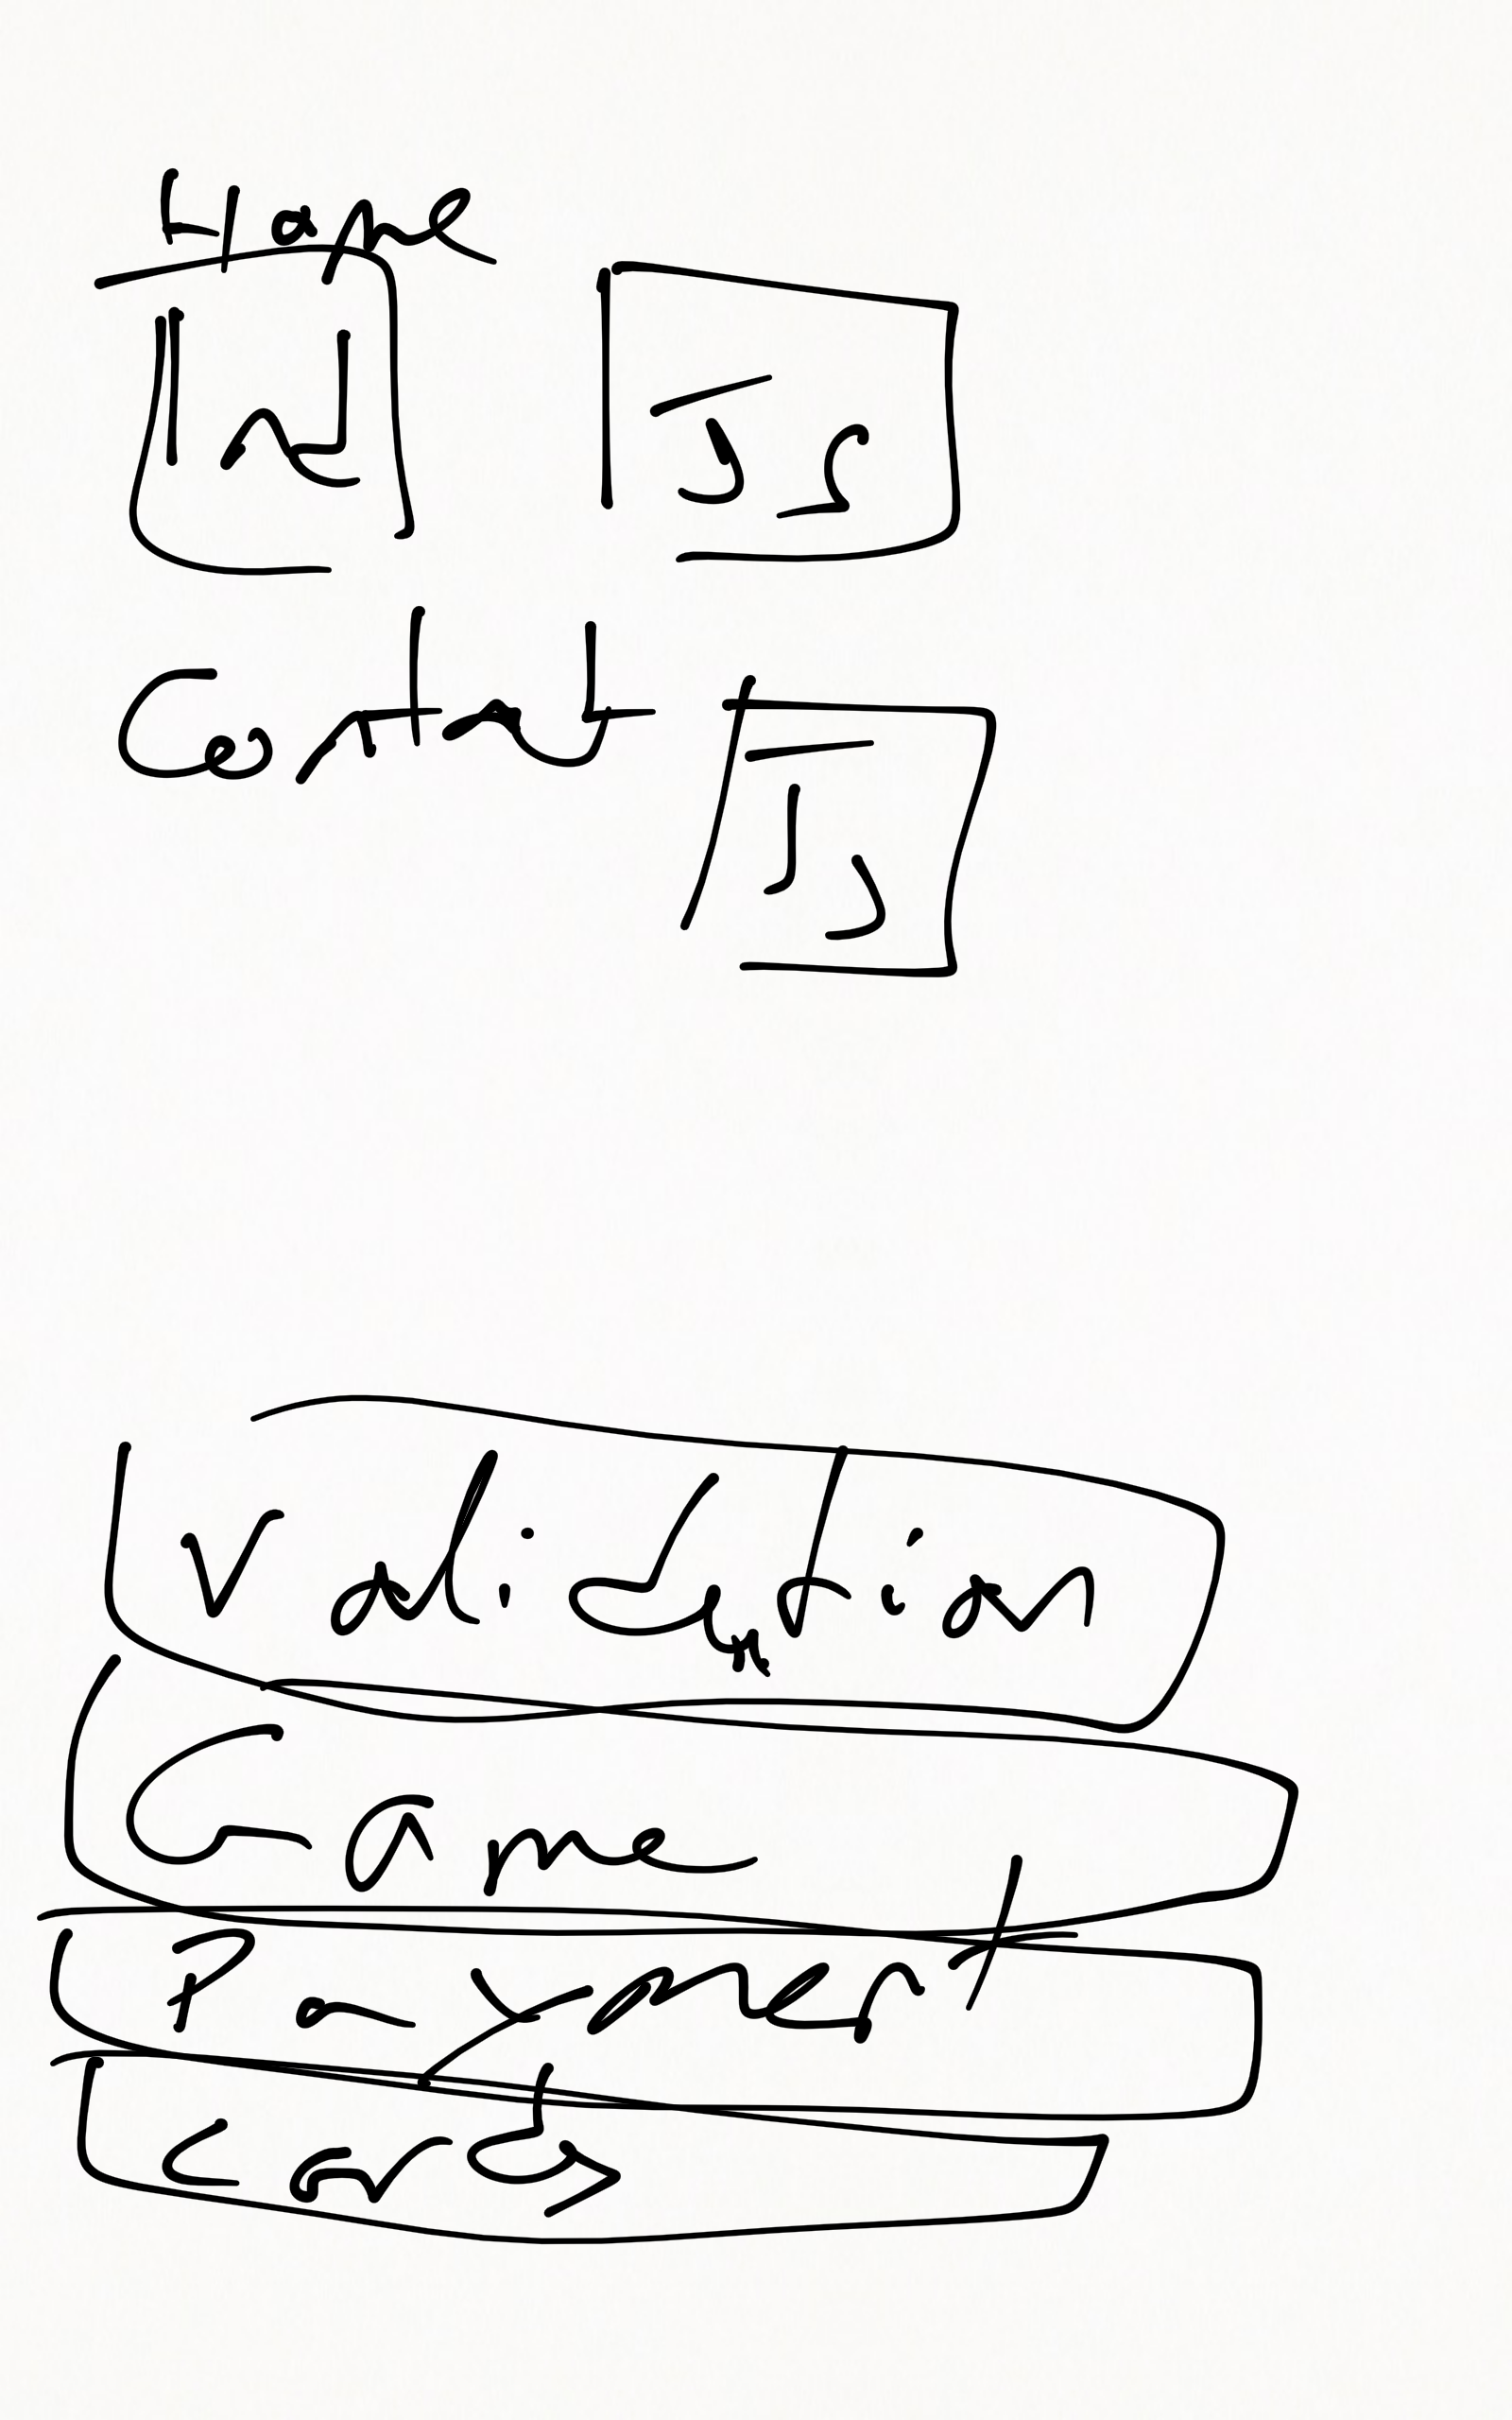 Home
Js
Contact
Js
Validation
Game
Payment
Cards